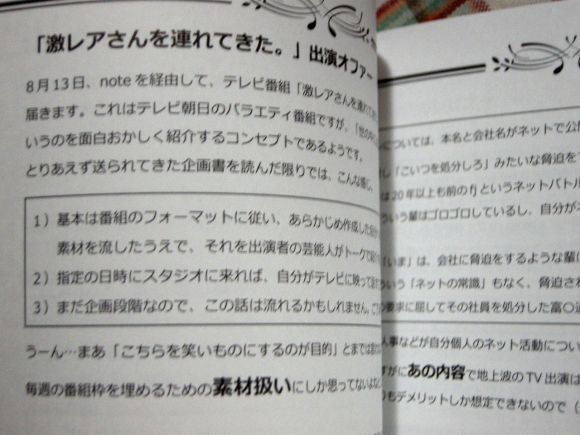 「激レアさんを連れてきた。」出演オファー
8月13日、noteを経由して、テレビ番組「激レアさんを連れて
届きます。これはテレビ朝日のバラエティ番組ですが、
いうのを面白おかしく紹介するコンセプトであるようです。
とりあえず送られてきた企画書を読んだ限りでは、こんな感じ。
1）基本は番組のフォーマットに従い、あらかじめ作成した
素材を流したうえで、それを出演者の芸能人がトークで
2）指定の日時にスタジオに来れば、自分がテレビに映って
3）まだ企画段階なので、この話は流れるかもしれません。
うーん…まあ「こちらを笑いものにするのが目的」とまでは
毎週の番組枠を埋めるための素材扱いにしか思ってない
については、本名と会社名がネットで公
「こいつを処分しろ」みたいな脅迫を
は20年以上も前のfjというネットバトル
いう輩はゴロゴロしているし、自分が
いま」は、会社に脅迫をするような輩に
いう「ネットの常識」もなく、脅迫され
要求に屈してその社員を処分した富〇通
人事などが自分個人のネット活動につい
がにあの内容で地上波のTV出演は
もデメリットしか想定できないので（